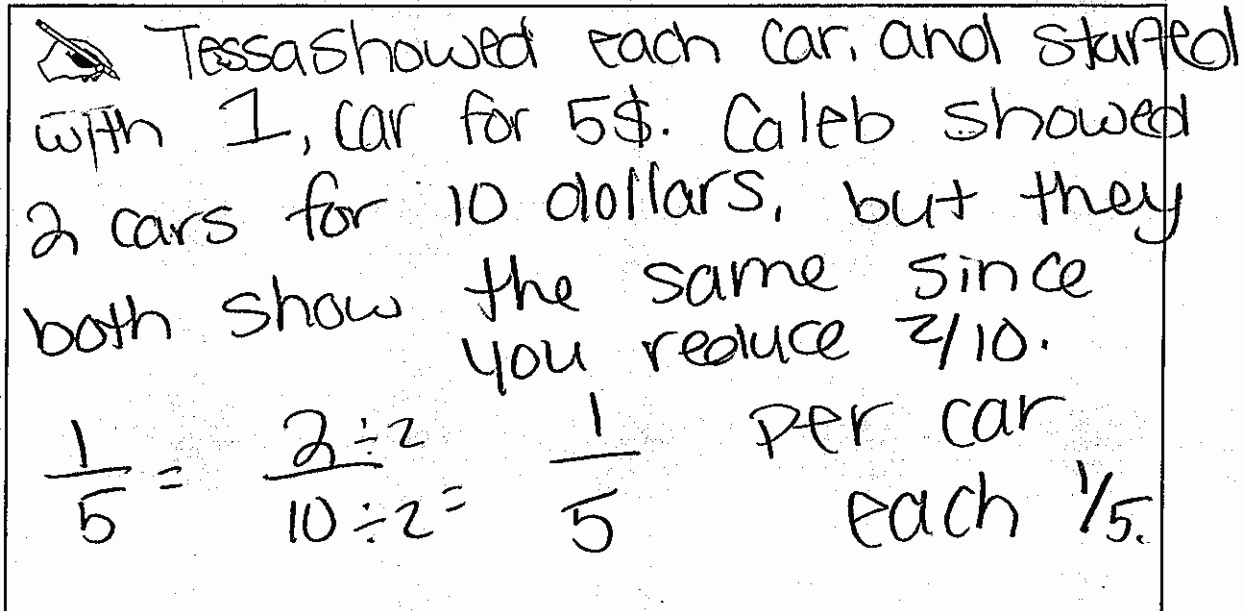 Tessa showed each car, and started
with 1, car for 5$. Caleb showed
2 cars for 10 dollars, but they
both show the same since
you reduce 2/10.
1/5 = 2÷2/10÷2 = 1/5 per car
each 1/5.